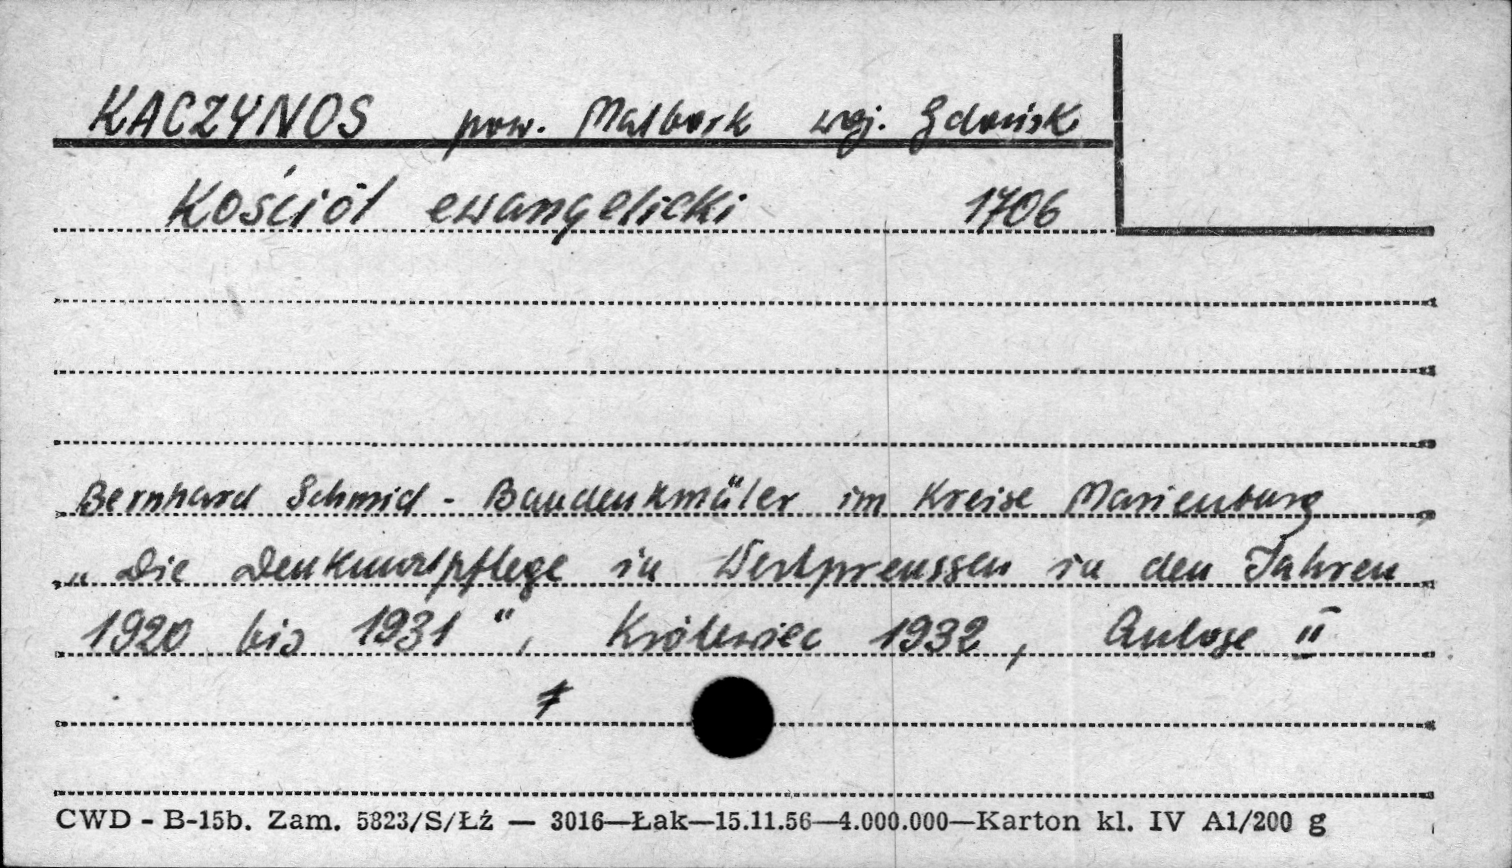 KACZYNOS pow. Malbork woj. Gdańsk
Kościół ewangelicki 1706
Bernhard Schmid - Baudenkmäler im Kreise Marienburg
„Die Denkmalpflege in Westpreussen in den Jahren
1920 bis 1931", Królewiec 1932, Anlage II
CWD - B-15b. Zam. 5823/S/Łź — 3016—Łak—15.11.56—4.000.000—Karton kl. IV A1/200 g